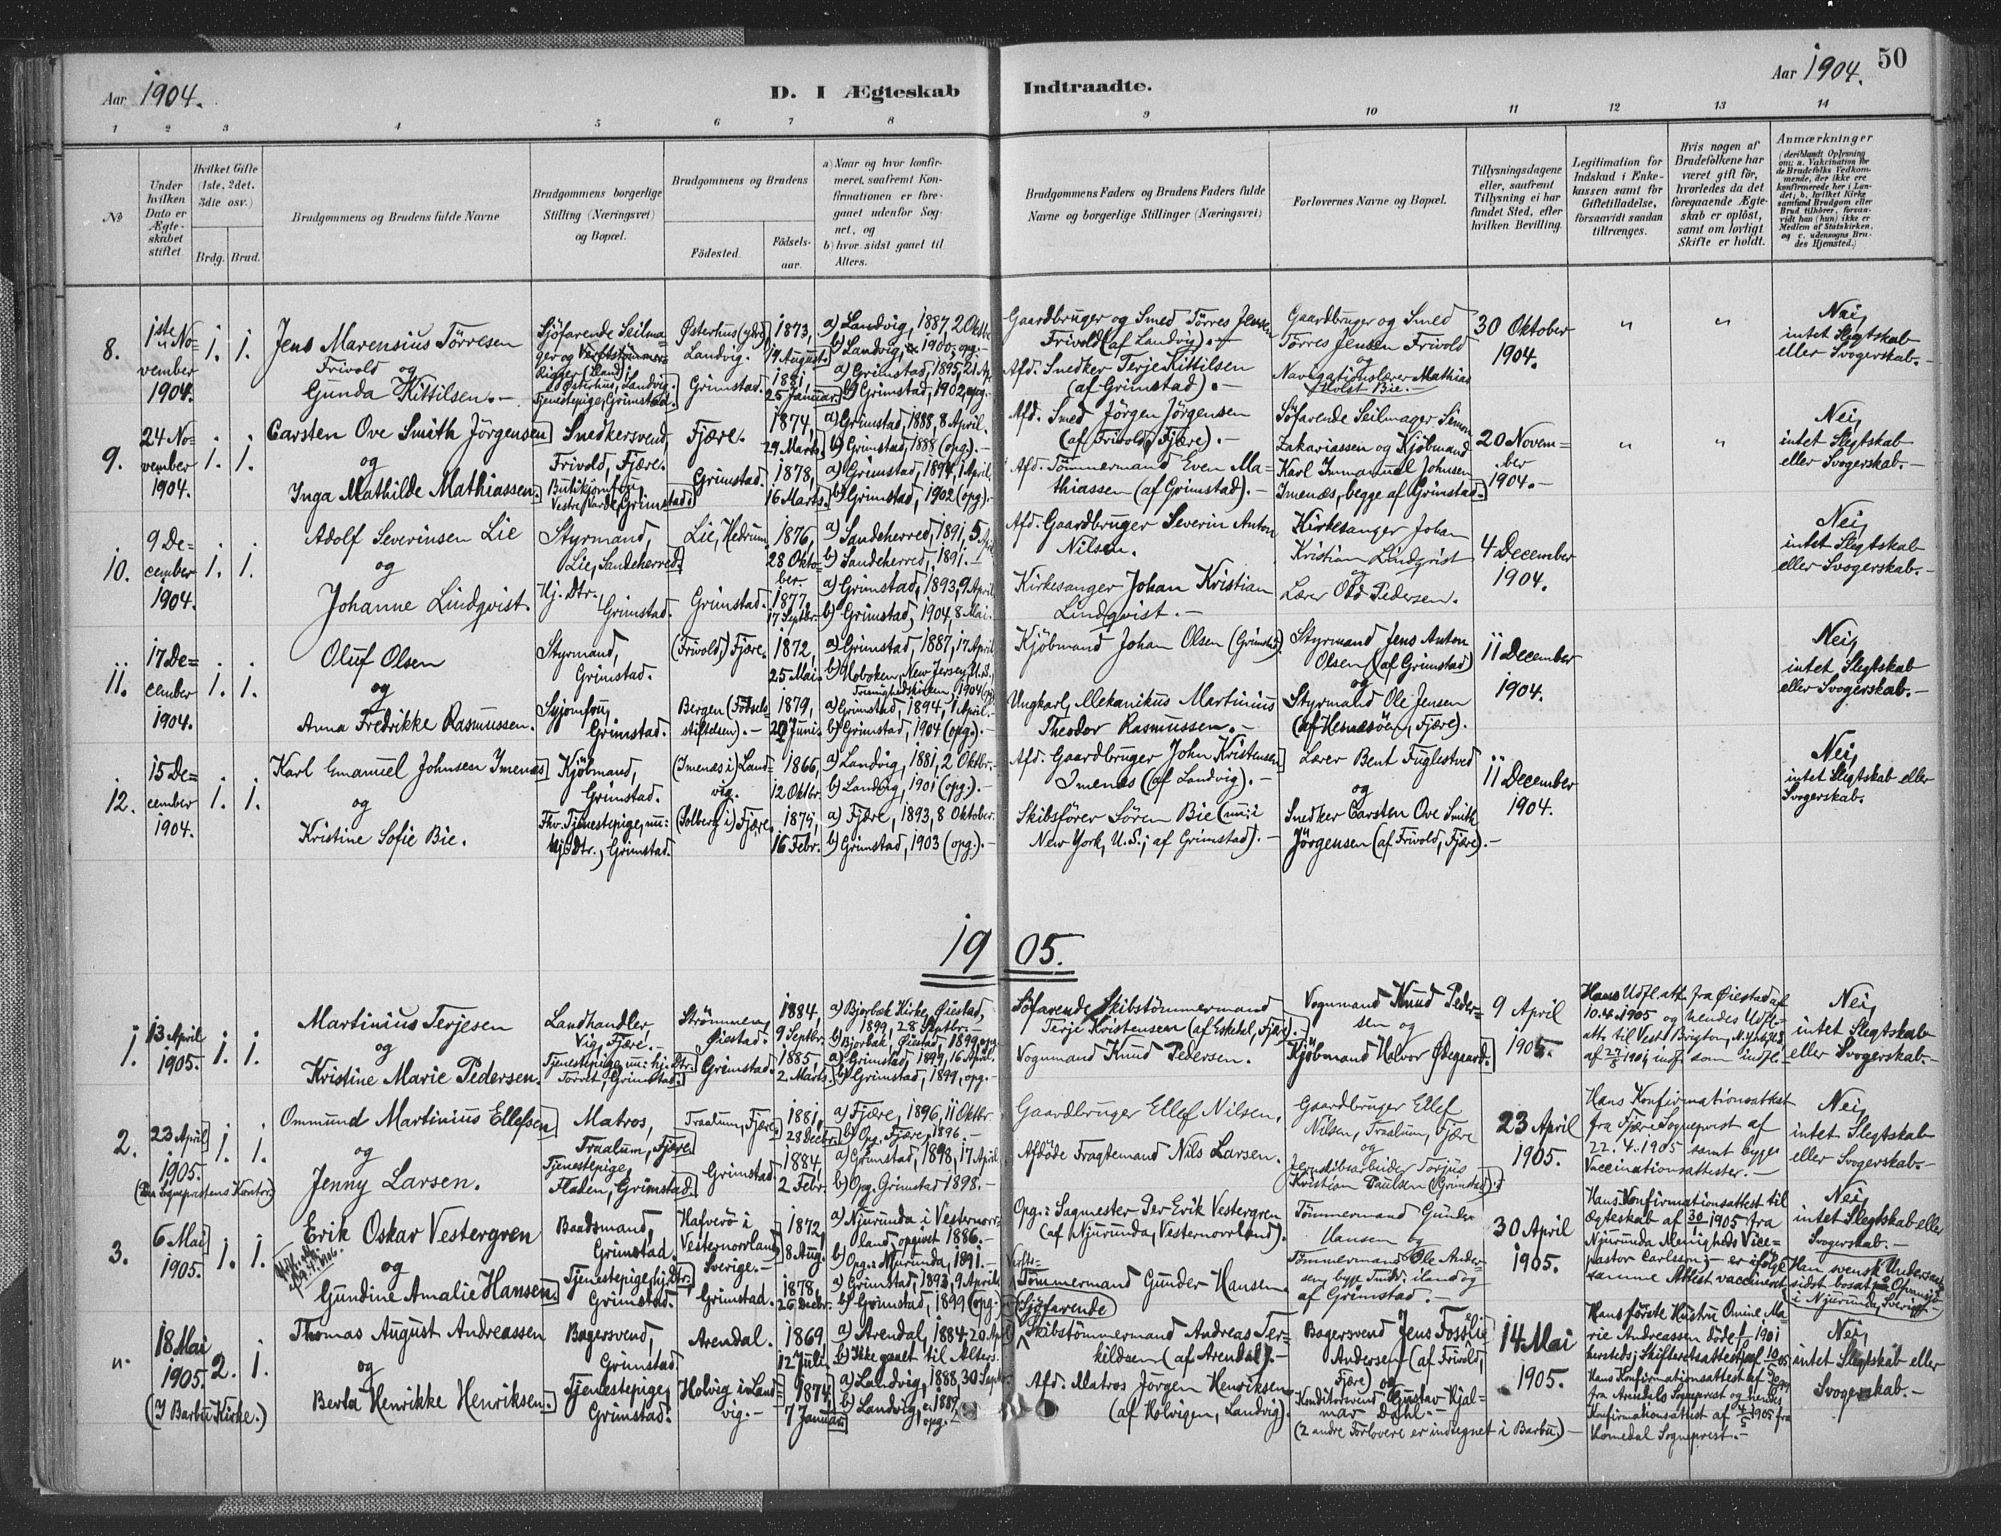 Aar 1904.
D. I Ægteskab Indtraadte.
Aar 1904. 50
1 2 3 4 5 6 7 8 9 10 11 12 13 14
No
Under hvilken Dato er Ægteskabet stiftet
Hvilket Gifte (1ste, 2det, 3die osv.)
Brdg. Brud.
Brudgommens og Brudens fulde Navne
Brudgommens borgerlige Stilling (Næringsvei) og Bopæl.
Brudgommens og Brudens
Födested.
Födselsaar.
a) Naar og hvor konfirmeret, saafremt Konfirmationen er foregaaet udenfor Sognet, og
b) hvor sidst gaaet til Alters.
Brudgommens Faders og Brudens Faders fulde Navne og borgerlige Stillinger (Næringsvei)
Forlovernes Navne og Bopæl.
Tillysningsdagene eller, saafremt Tillysning ei har fundet Sted, efter hvilken Bevilling.
Legitimation for Indskud i Enkekassen samt for Giftetilladelse, forsaavidt saadan tiltrænges.
Hvis nogen af Brudefolkene har været gift før, hvorledes da det foregaaende Ægteskab er oplöst, samt om lovligt Skifte er holdt.
Anmærkninger
(deriblandt Oplysning om: a. Vakcination for de Brudefolks Vedkommende, der ikke ere konfirmerede her i Landet; b. hvilket Kirkesamfund Brudgom eller Brud tilhörer, forsaavidt han (hun) ikke er Medlem af Statskirken, og c. udensogns Brudes Hjemsted.)
8.
1ste November 1904.
1. 1.
Jens Marensius Törresen Frivold og
Gunda Kittilsen.-
Sjöfarende Seilmager og
Rigger (iland), Österhus, Landvig.
Tjenestepige, Grimstad.
Østerhus (ydre) Landvig.
Grimstad.
1873, 19 August.
1881, 25 Januar.
a) Landvig, 1887, 2 Oktbr
b) Landvig, 1900, opg.-
a) Grimstad, 1895, 21 Ap.
b) Grimstad, 1902, opg.-
Gaardbruger og Smed Törres Jensen Frivold (af Landvig).-
Afd. Snedker Terje Kittilsen (af Grimstad).-
Gaardbruger og Smed Törres Jensen Frivold
og
Navigationslærer Mathias Holst Bie.
30 Oktober 1904.
"
"
Nei, intet Slegtskab eller Svogerskab.-
9.
24 November 1904.
1. 1.
Carsten Ove Smith Jörgensen
og
Inga Mathilde Mathiassen.
Snedkersvend, Frivold, Fjære.
Butikjomfru, Vestre Varde, Grimstad.
Fjære.
Grimstad.
1874, 29 Marts.
1878, 16 Marts.
a) Grimstad, 1888, 8 April.
b) Grimstad, 1888 (opg.).-
a) Grimstad, 1894, 1 April.
b) Grimstad, 1902 (opg).-
Afd. Smed Jörgen Jörgensen (af Frivold, Fjære).-
Afd. Tömmermand Even Mathiassen (af Grimstad).-
Söfarende Seilmager Simon Zakariassen og Kjöbmand Karl Immanuel Johnsen Imenæs, begge af Grimstad.
20 November 1904.-
"
"
Nei, intet Slegtskab eller Svogerskab.-
10.
9 December 1904.
1. 1.
Adolf Severinsen Lie
og
Johanne Lindqvist.
Styrmand, Lie, Sandeherred.
Hj. Dtr. Grimstad.
Lie, Hedrum.
Grimstad.
1876, 28 Oktober.
1877, 17 Septbr.
a) Sandeherred, 1891, 5 April
b) Sandeherred, 1891.-
a) Grimstad, 1893, 9 April.
b) Grimstad, 1904, 8 Mai.
Afd. Gaardbruger Severin Anton Nilsen.
Kirkesanger Johan Kristian Lindqvist.-
Kirkesanger Johan Kristian Lindqvist
og
Lærer Odd Pedersen.
4 December 1904.
Nei, intet Slegtskab eller Svogerskab.-
11.
17 December 1904.
1. 1.
Oluf Olsen
og
Anna Fredrikke Rasmussen.
Styrmand, Grimstad.
Syjomfru, Grimstad.
(Frivold,) Fjære.
Bergen (Födselsstiftelsen).-
1872, 25 Mai.
1879, 20 Juni.
a) Grimstad, 1887, 17 April
b) Hoboken, New Jersey, U.S., Trenighedskirken, 1904 (op
a) Grimstad, 1894, 1 April.
b) Grimstad, 1904 (opg.).-
Kjöbmand Johan Olsen (Grimstad)
Ungkarl, Mekanikus Martinius Theodor Rasmussen.-
Styrmand Jens Anton Olsen (af Grimstad)
og
Styrmand Ole Jensen (af Hesnesöen, Fjære).
11 December 1904.
Nei, intet Slegtskab eller Svogerskab.-
12.
15 December 1904.
1. 1.
Karl Emanuel Johnsen Imenæs
og
Kristine Sofie Bie.
Kjöbmand, Grimstad.
Fhv. Tjenestepige, nu: Hj. Dtr., Grimstad.
(Imenæs i) Landvig.
(Solberg i) Fjære.
1866, 12 Oktbr.
1879, 16 Febr.
a) Landvig, 1881, 2 Oktbr.
b) Landvig, 1901 (opg.).-
a) Fjære, 1893, 8 Oktober.
b) Grimstad, 1903 (opg.).-
Afd. Gaardbruger John Kristensen Imenæs (af Landvig).-
Skibsförer Sören Bie (nu: i New York, U.S.; af Grimstad).-
Lærer Bent Fuglestved
og
Snedker Carsten Ove Smith Jörgensen (af Frivold, Fjære).-
11 December 1904.
Nei, intet Slegtskab eller Svogerskab.
1905.
1.
13 April 1905.
1. 1.
Martinius Terjesen
og
Kristine Marie Pedersen.
Landhandler, Vig, Fjære.-
Tjenestepige, nu: hj. Dtr. Torvet, Grimstad.
Strömmen, Øiestad.
Grimstad.
1884, 9 Septbr.
1885, 2 Marts.
a) Bjorbæk Kirke, Øiestad, 1899, 28 Septbr.-
b) Bjorbæk, Øiestad, 1899, opg.
a) Grimstad, 1899, 16 April.
b) Grimstad, 1899, opg.-
Söfarende Skibstömmermand Terje Kristensen (af Esketel, Fjære).
Vognmand Knud Pedersen.
Vognmand Knud Pedersen og
Kjöbmand Halvor Ödegaard.
9 April 1905.
Hans Udfl. att. fra Øiestad af 10.4.1905 og hendes Udfl. att. til Vest Brigton,
Nei, intet Slegtskab eller Svogerskab.-
2.
23 April 1905.
(Paa Sognepræstens Kontor.)
1. 1.
Ommund Martinius Ellefsen
og
Jenny Larsen.
Matros, Traalum, Fjære.
Tjenestepige, Fladen, Grimstad.
Traalum, Fjære.
Grimstad.
1881, 28 Decbr.
1884, 2 Febr.
a) Fjære, 1896, 11 Oktbr
b) Op. Fjære, 1896.-
a) Grimstad, 1898, 17 April
b) Opg. Grimstad 1898.-
Gaardbruger Ellef Nilsen.
Afdöde Fragtemand Nils Larsen.
Gaardbruger Ellef Nilsen, Traalum, Fjære
og
Jernskibsarbeider Torjus Kristian Paulsen (Grimstad).
23 April 1905.
Hans Konfirmationsattest fra Fjære Sognepræst af 22.4.1905 samt begges Vaccinationsattester.-
Nei, intet Slegtskab eller Svogerskab.-
3.
6 Mai 1905.
1. 1.
Erik Oskar Vestergren
og
Gundine Amalie Hansen.
Baadsmand, Grimstad.
Tjenestepige, hj. Dtr. Grimstad.
Hafverö i Vesternorrland, Sverige.-
Grimstad.
1872, 8 Aug.
1878, 26 Decbr.
a) Njurunda i Vesternorrland, opgivet 1886.-
b) Opg.: Njurunda, 1891.-
a) Grimstad, 1893, 9 April
b) Grimstad, 1899 (opg.)
Opg.: Sagmester Per Erik Vestergren (af Njurunda, Vesternorrland).
Verfts-
Tömmermand Gunder Hansen.
Tömmermand Gunder Hansen og
Tömmermand Ole Andersen, begge iland og af Grimstad.-
30 April 1905.
Hans Konfirmationsattest til Ægteskab af 30/1 1905 fra Njurunda Menigheds Vicepastor Carlsson;- er ifølge samme Attest vaccineret
Nei, intet Slegtskab eller Svogerskab.-
Han svensk Undersaat sidst bosat i Njurunda, Sverige.-
"
18 Mai 1905.
(I Barbu Kirke.)
2. 1.
Thomas August Andreassen
og
Berta Henrikke Henriksen.
Bagersvend, Grimstad
Tjenestepige, Grimstad.
Arendal.
Holvig i Landvig.-
1869, 12 Juli.
1874, 7 Januar.
a) Arendal, 1884, 20 April
b) Ikke gaaet til Alters.
a) Landvig, 1888, 30 Septbr.
b) Landvig, 1889, opg.
Sjöfarende
Skibstömmermand Andreas Terkildsen (af Arendal).-
Afd. Matros Jörgen Henriksen (af Holvigen, Landvig).
Bagersvend Jens Fosslie Andersen (af Frivold, Fjære) og
Konditorsvend Gustav Hjalmar Dahl.-
(2 andre Forlovere er indtegnet i Barbu.)-
14 Mai 1905.
Hans første Hustru Omine Marie Andreassen döde 1901
Hans Konfirmationsattest af
fra Arendals Sognepræst og hendes Konfirmationsattest af 4/5 1905 fra Homedal Sognepræst.-
Nei, intet Slegtskab eller Svogerskab.-